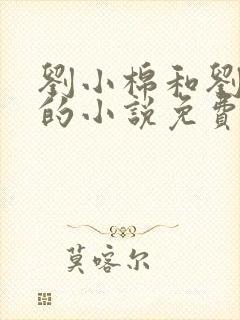 劉小棉和劉
的小說免費
莫喀尔